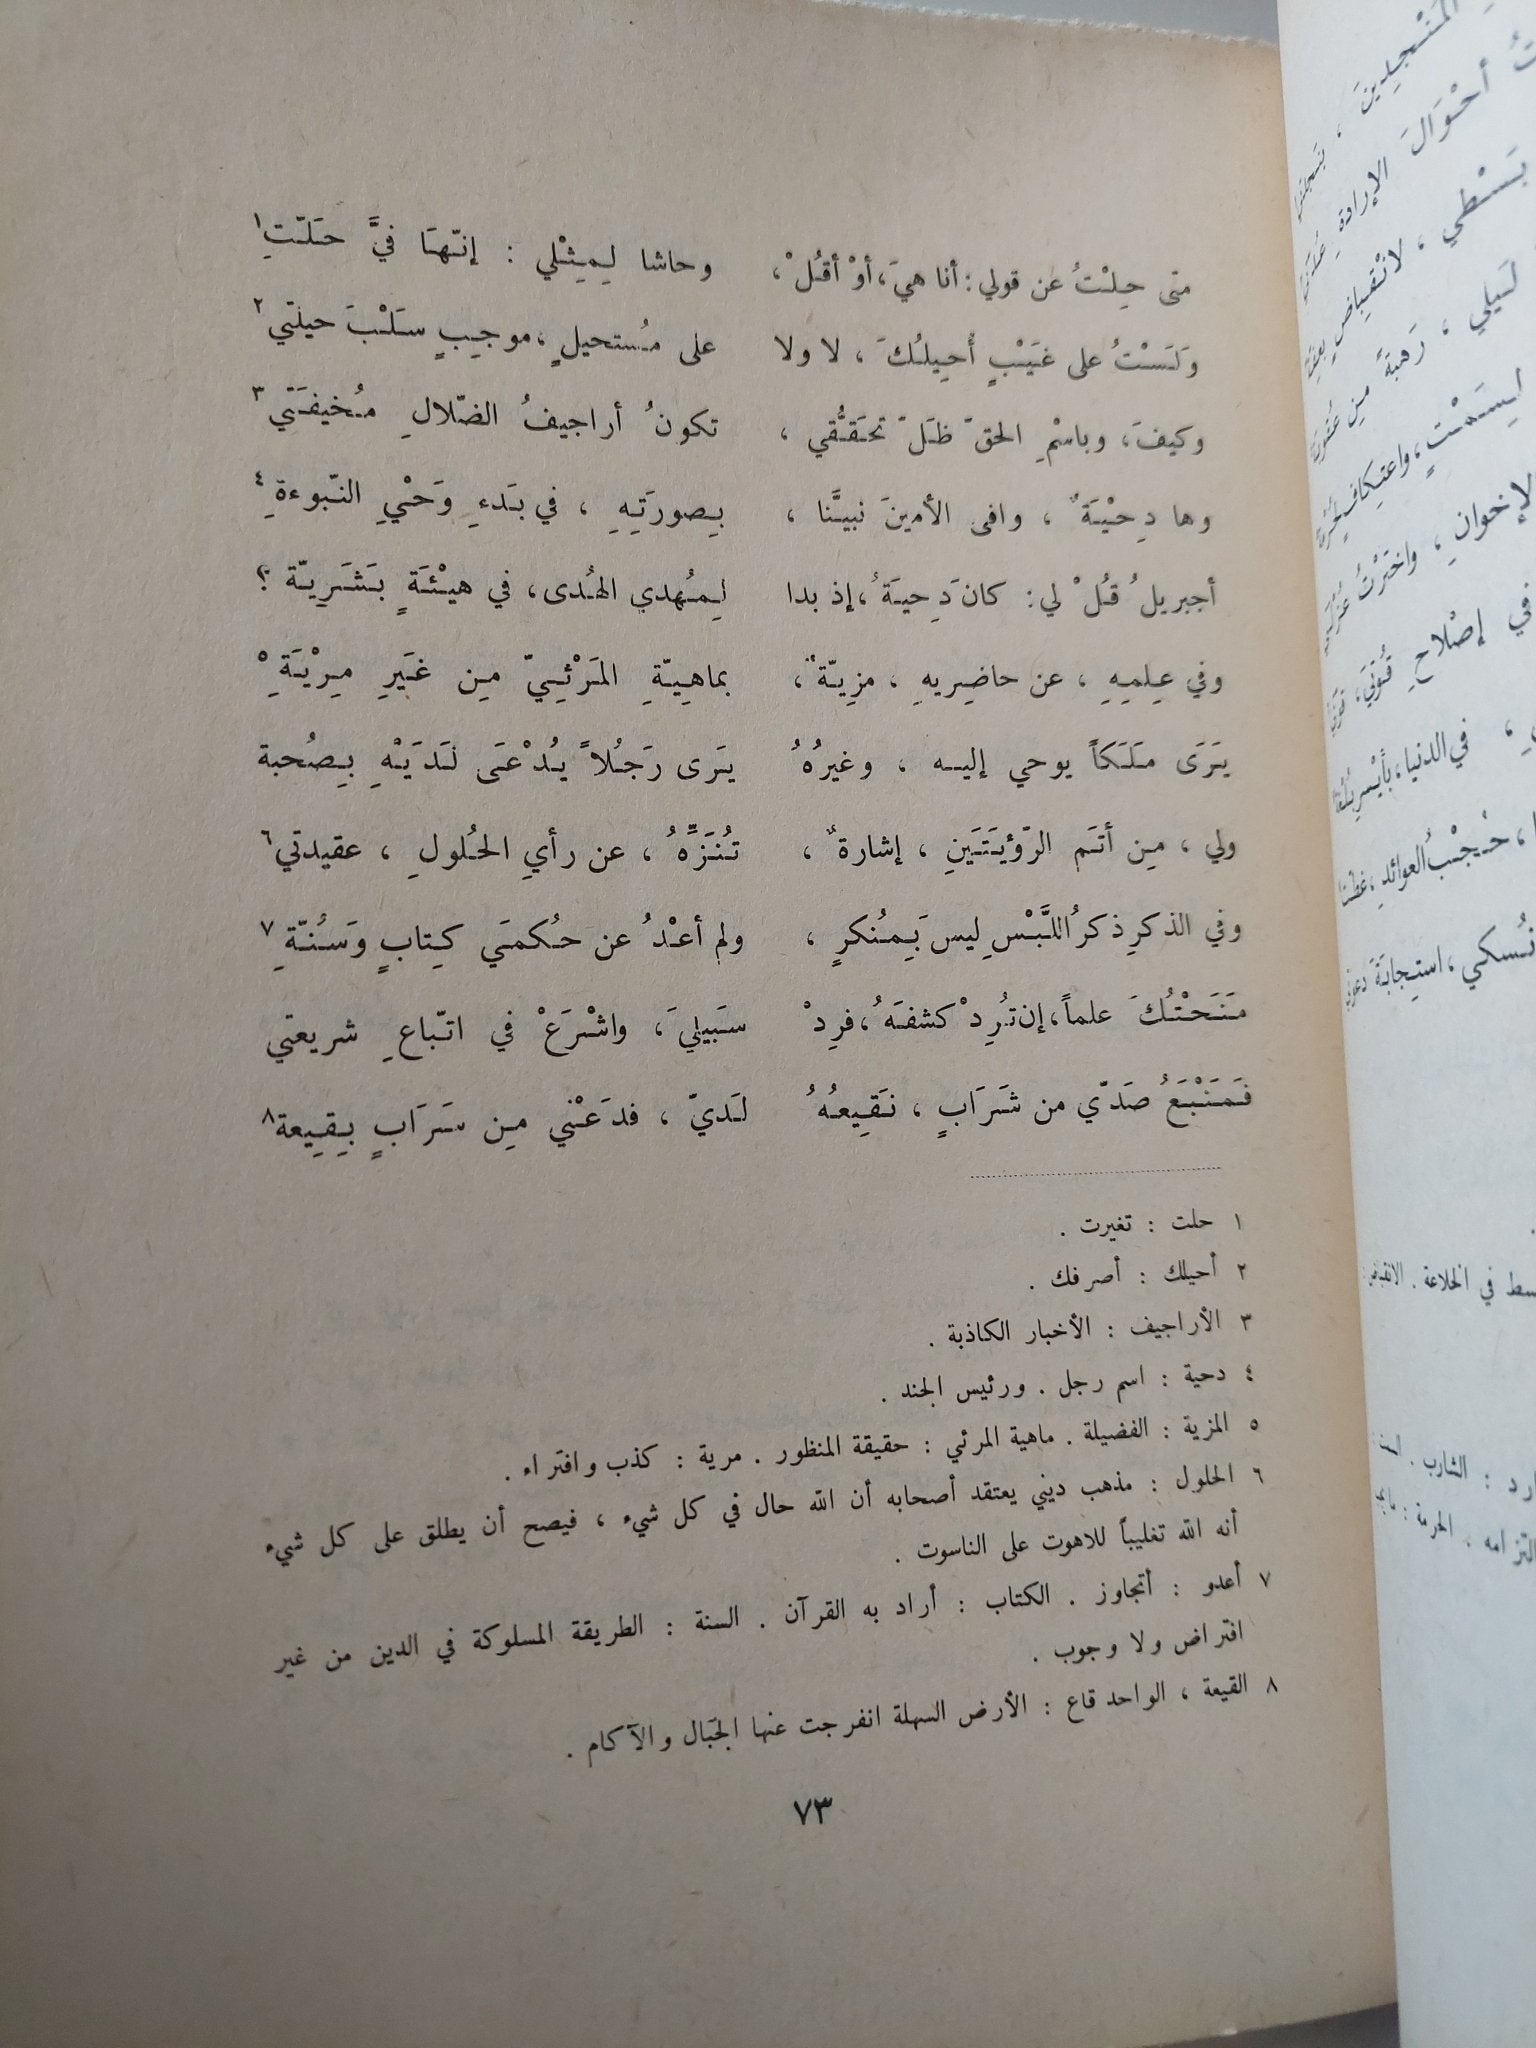 متى حِلْتُ عن قولي: أنا هيَ، أوْ أقُلْ، وحاشا لِمِثْلي : إنّها فيَّ حَلّتِ ١
وَلَسْتُ على غَيْبٍ أُحِيلُكَ ، لا ولا على مُستحيلٍ، موجِبٍ سَلْبَ حيلَتي ٢
وكيفَ، وباسْمِ الحقّ ظَلّ تحَقُّقي ، تكونُ أراجيفُ الضّلالِ مُخيفَتي ٣
وها دِحْيَةٌ ، وافى الأمينَ نبيَّنا ، بِصورَتِهِ ، في بَدءِ وَحْيِ النّبوءةِ ٤
أجبريلُ قُلْ لي: كانَ دِحيَةُ، إذ بدا لِمُهدي الهُدى، في هيْئَةٍ بَشَرِيّة ؟
وفي عِلمِهِ ، عن حاضِريهِ ، مزِيّةٌ، بماهِيّةِ المَرْئِيّ مِن غَيرِ مِرْيَةِ ٥
يَرَى مَلَكاً يوحي إليه ، وغيرُهُ يَرى رَجُلاً يُدْعَى لَدَيْهِ بِصُحبة
ولي ، مِن أتَم الرّؤيَتَينِ ، إشارةٌ ، تُنَزِّهُ ، عن رأيِ الحُلولِ ، عقيدتي ٦
وفي الذكرِ ذكرُ اللَّبْسِ ليسَ بِمُنكرٍ ، ولم أعْدُ عن حُكمَي كِتابٍ وَسُنّةِ ٧
مَنَحْتُكَ علماً، إن تُرِدْ كشفَهُ، فرِدْ سَبيلي، واشْرَعْ في اتّباعِ شريعتي
فَمَنْبَعُ صَدّي من شَرَابٍ ، نَقِيعُهُ لَديّ ، فدَعْني مِن سَرَابٍ بِقِيعة ٨
١ حلت : تغيرت .
٢ أحيلك : أصرفك .
٣ الأراجيف : الأخبار الكاذبة .
٤ دحية : اسم رجل . ورئيس الجند .
٥ المزية : الفضيلة . ماهية المرئي : حقيقة المنظور . مرية : كذب وافتراء .
٦ الحلول : مذهب ديني يعتقد أصحابه أن الله حال في كل شيء ، فيصح أن يطلق على كل شيء
أنه الله تغليباً للاهوت على الناسوت .
٧ أعدو : أتجاوز . الكتاب : أراد به القرآن . السنة : الطريقة المسلوكة في الدين من غير
افتراض ولا وجوب .
٨ القيعة ، الواحد قاع : الأرض السهلة انفرجت عنها الجبال والآكام .
٧٣
أحْوَالَ الإرادةِ
بَسْطي ، لانْقِباضٍ بِعِفّة
لَيلي ، رَهبةً مِن عُقوبَة
لِسَمْتٍ، واعتِكافٍ
واختَرْتُ
في إصْلاحِ قُوتي،
في الدنيا، بأيْسرِ
حُجْبُ العوائدِ،
نُسكي، استِجابَةَ دعوتي
في الخلاعة .
الشارب .
التزامه . الحرمة :